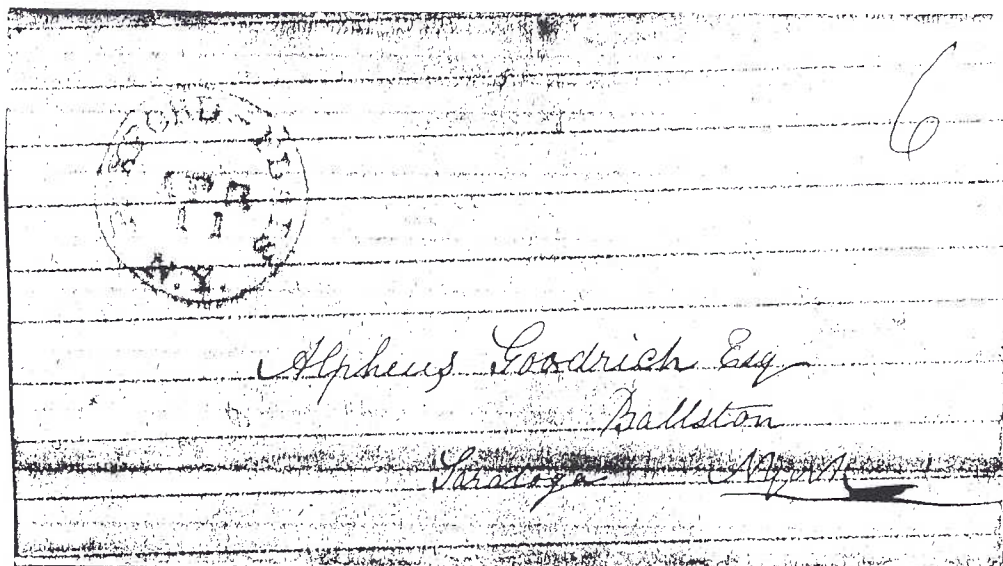 6
N.Y.
Alpheus Goodrich Esq
Ballston
Saratoga